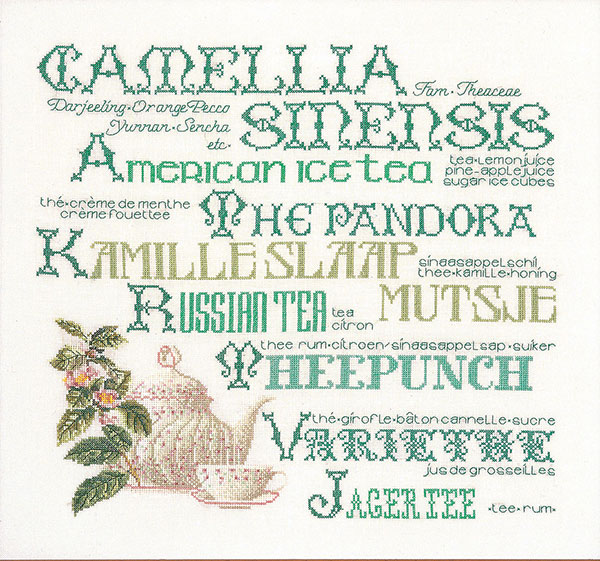 CAMELLIA
Fam. Theaceae
Darjeeling • Orange Pecco
SINENSIS
Yunnan • Sencha
etc.
AMERICAN ICE TEA
tea • lemonjuice
pine-applejuice
sugar ice cubes
thé • crème de menthe
crème fouettee
THE PANDORA
KAMILLE SLAAP
sinaasappelschil
thee • kamille • honing
MUTSJE
RUSSIAN TEA
tea
citron
thee rum • citroen/sinaasappelsap • suiker
THEEPUNCH
thé • girofle • bâton cannelle • sucre
VARIETHE
jus de groseilles
JAGERTEE
• tee • rum •